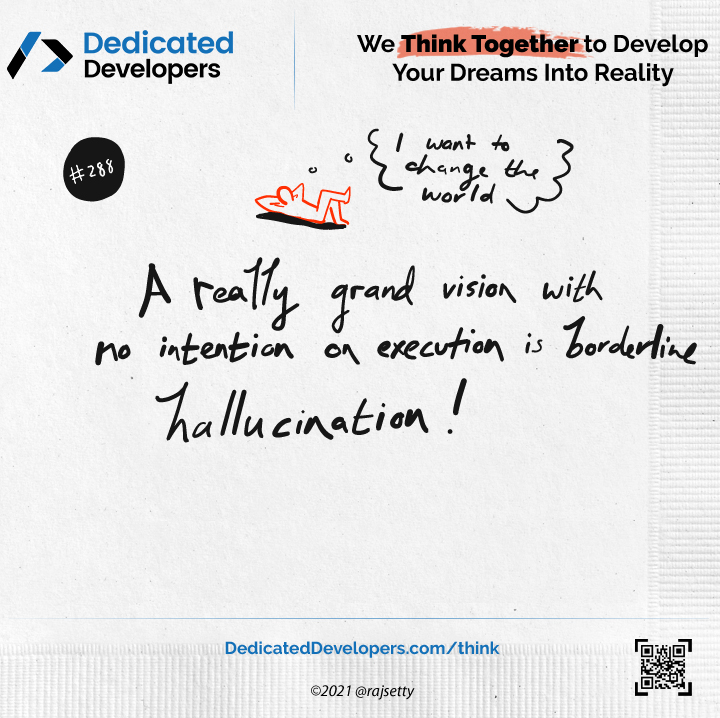 Dedicated
Developers
We Think Together to Develop
Your Dreams Into Reality
#288
I want to
change the
world
A really grand vision with
no intention on execution is borderline
hallucination!
DedicatedDevelopers.com/think
©2021 @rajsetty